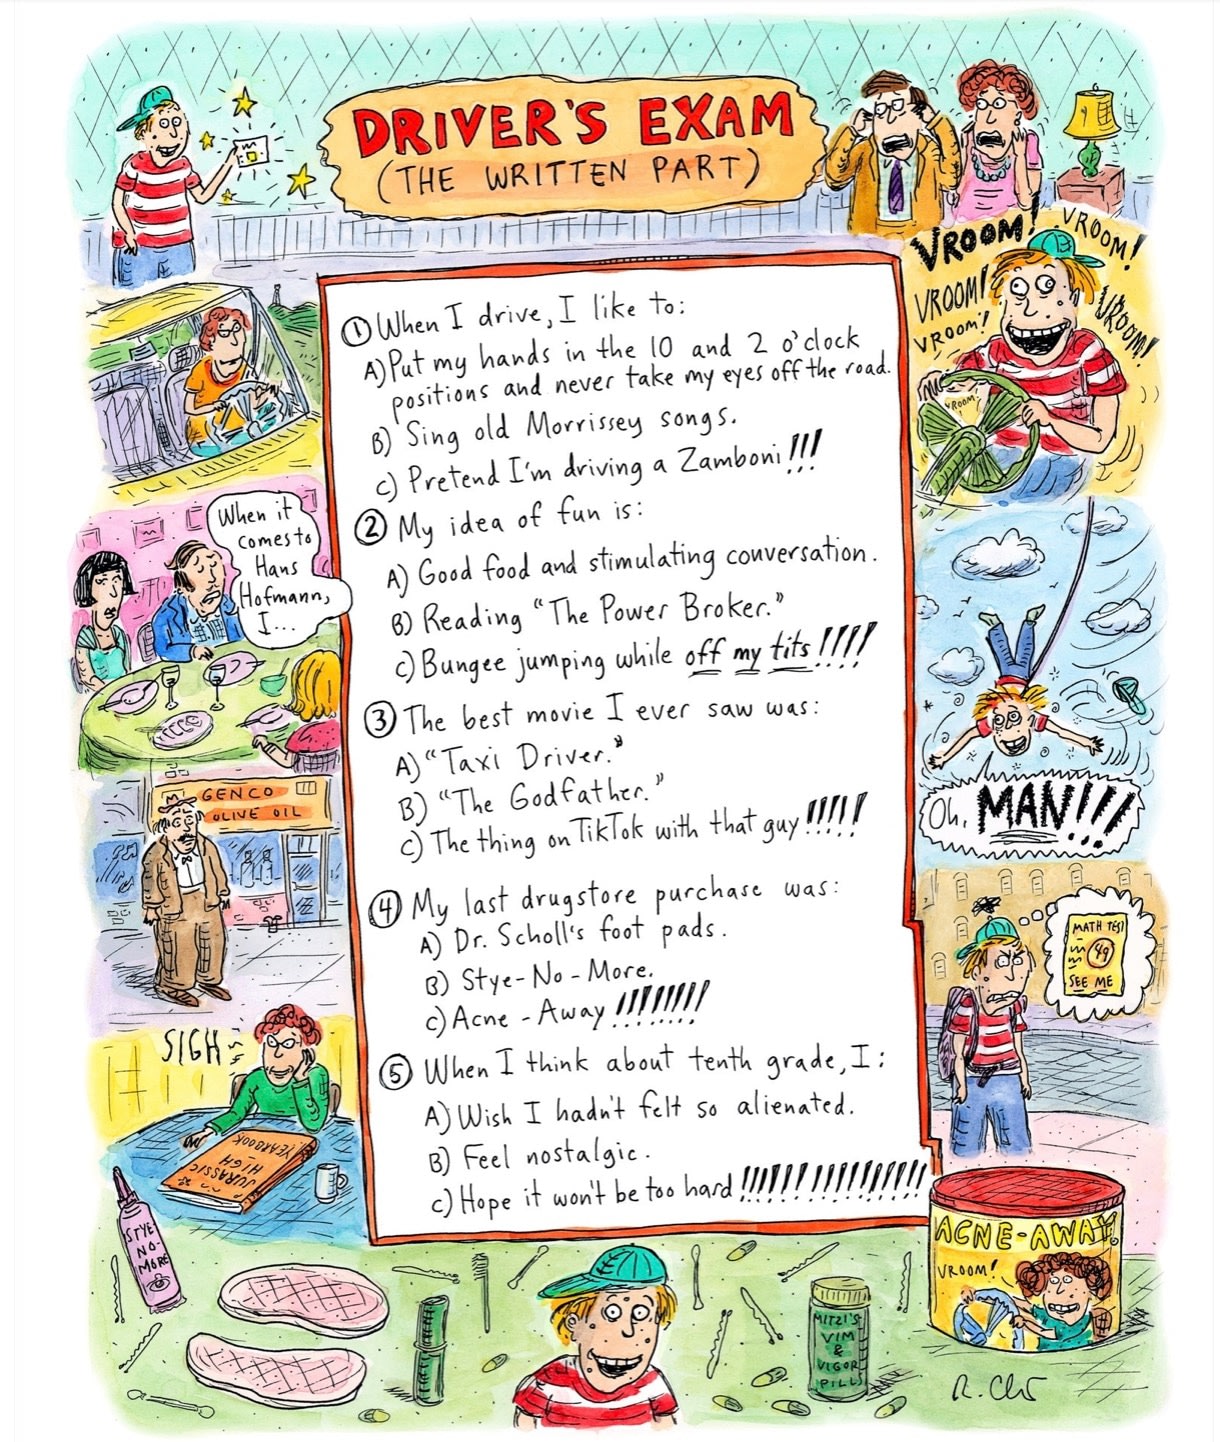 DRIVER'S EXAM
(THE WRITTEN PART)
VROOM!
VROOM!
VROOM!
VROOM!
VROOM!
VROOM!
① When I drive, I like to:
A) Put my hands in the 10 and 2 o'clock
positions and never take my eyes off the road.
B) Sing old Morrissey songs.
C) Pretend I'm driving a Zamboni!!!
When it
comes to
Hans
Hofmann,
I...
② My idea of fun is:
A) Good food and stimulating conversation.
B) Reading "The Power Broker."
C) Bungee jumping while off my tits!!!!
Oh, MAN!!!
③ The best movie I ever saw was:
A) "Taxi Driver."
B) "The Godfather."
C) The thing on TikTok with that guy!!!!!
GENCO
OLIVE OIL
④ My last drugstore purchase was:
A) Dr. Scholl's foot pads.
B) Stye-No-More.
C) Acne-Away!!!!!!!!
MATH TEST
49
SEE ME
SIGH
⑤ When I think about tenth grade, I:
A) Wish I hadn't felt so alienated.
B) Feel nostalgic.
C) Hope it won't be too hard!!!!!!!!!!!!!!!
JURASSIC
HIGH
YEARBOOK
STYE
NO-
MORE
MITZI'S
VIM
&
VIGOR
PILLS
ACNE-AWAY
VROOM!
R. Chast